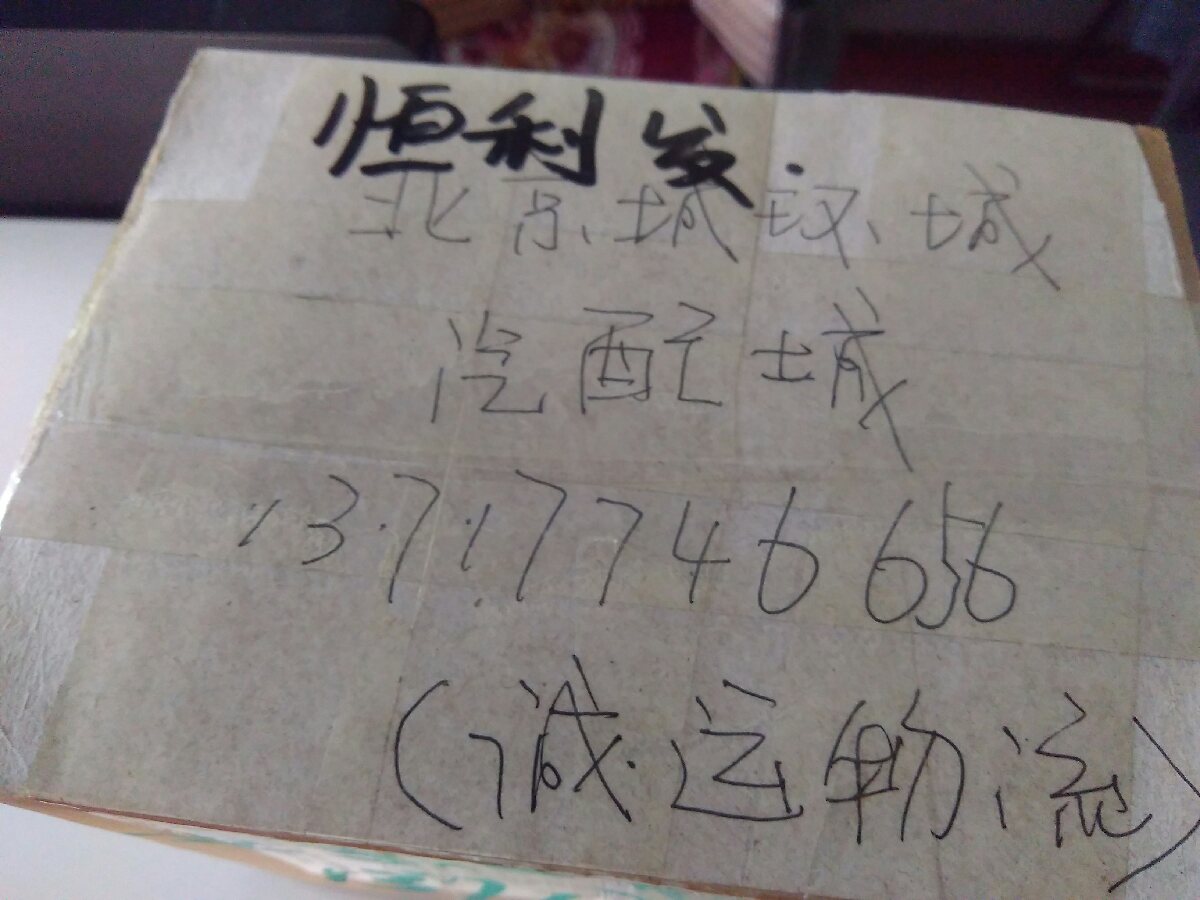 恒利发.
北京城玟城
汽配城
13717746656
(诚运物流)